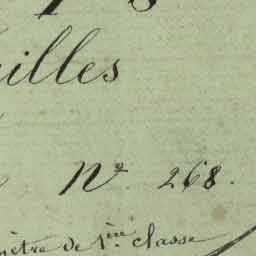 illes
N° 268.
mètre de 1ère classe